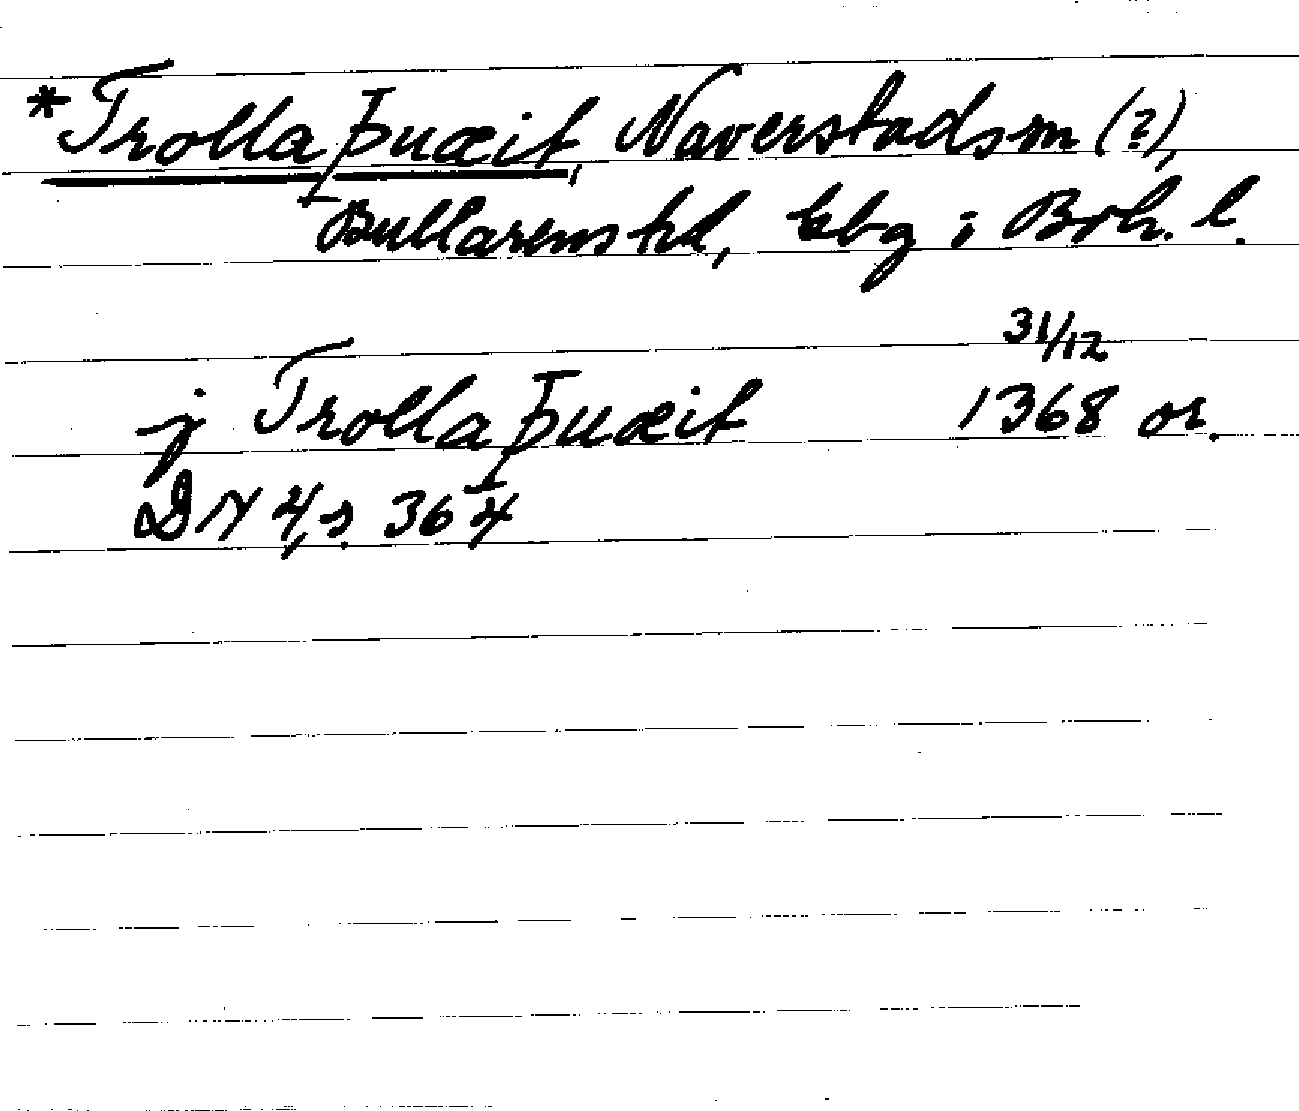 *Trollaþuæit, Naverstads sn (?),
Bullarens hd, Gbg o Boh. l.
j Trollaþuæit 31/12 1368 or.
DN 4, s. 364